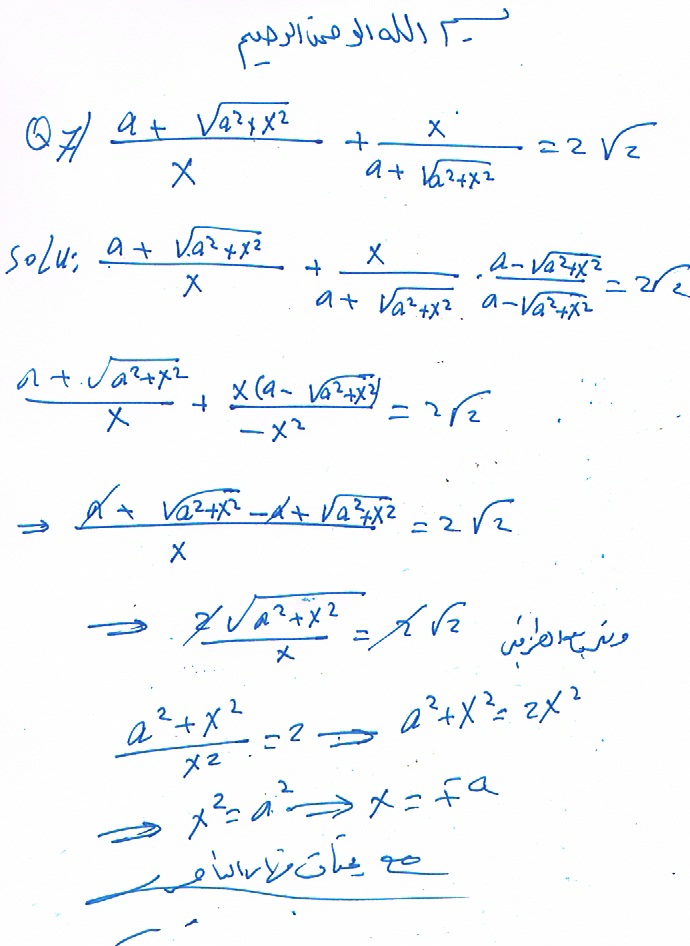 بسم الله الرحمن الرحيم
Q7/ (a + √(a²+x²))/x + x/(a + √(a²+x²)) = 2√2
Solu: (a + √(a²+x²))/x + x/(a + √(a²+x²)) · (a - √(a²+x²))/(a - √(a²+x²)) = 2√2
(a + √(a²+x²))/x + x(a - √(a²+x²))/(-x²) = 2√2
⇒ (a + √(a²+x²) - a + √(a²+x²))/x = 2√2
⇒ 2√(a²+x²)/x = 2√2 وبتربيع الطرفين
(a²+x²)/x² = 2 ⇒ a²+x² = 2x²
⇒ x² = a² ⇒ x = ∓a
مع تحيات